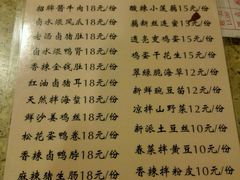 招牌酱牛肉18元/份
卤水煨凤爪18元/份
老汤卤猪肚18元/份
卤水煨鸭胗18元/份
香辣金钱肚18元/份
红油卤猪耳18元/份
天然拌海蜇18元/份
鲜沙姜鸡丝18元/份
松花蛋鸭卷18元/份
香辣卤鸭脖18元/份
麻辣猪生肠18元/份
酸辣小莲藕15元/份
藕新丝连蜜15元/份
透亮寰鸡宴15元/份
鸡蛋干花生15元/份
翠绿脆海草12元/份
新鲜豌豆苗12元/份
凉拌山野菜12元/份
新派土豆丝10元/份
春菜拌黄豆10元/份
香辣拌粉皮10元/份